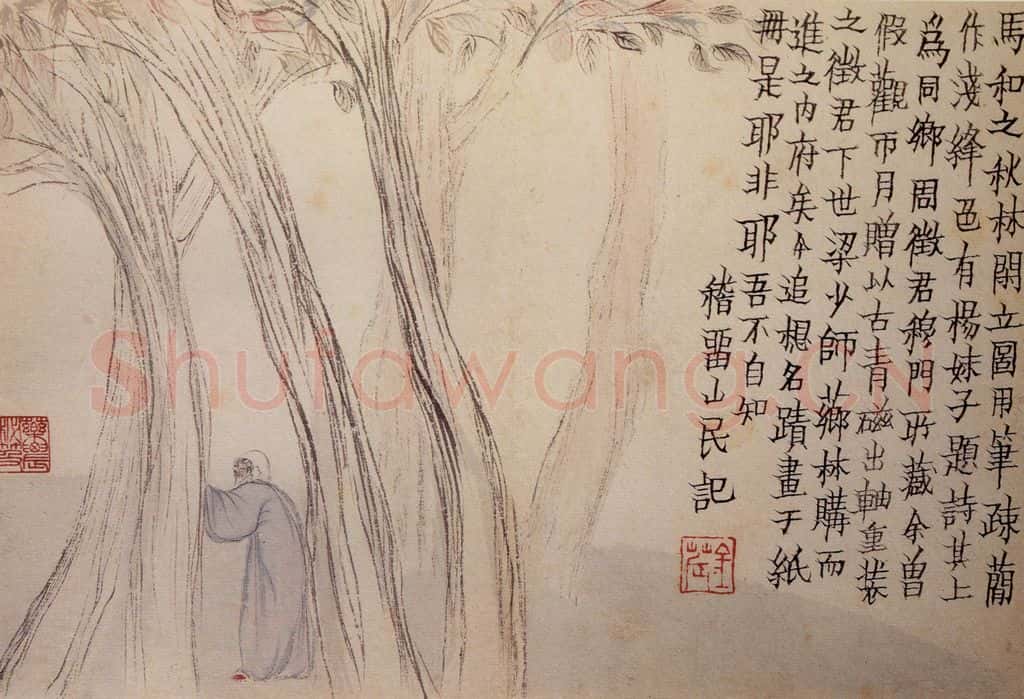 馬和之秋林閒立圖用筆疎蕳
作淺絳色有楊妹子題詩其上
爲同鄉周徵君穆門所藏余曾
假觀帀月贈以古青磁出軸重裝
之徵君下世梁少師薌林購而
進之内府矣今追想名蹟畫于紙
冊是耶非耶吾不自知
稽留山民記
金農
Shufawang.CN